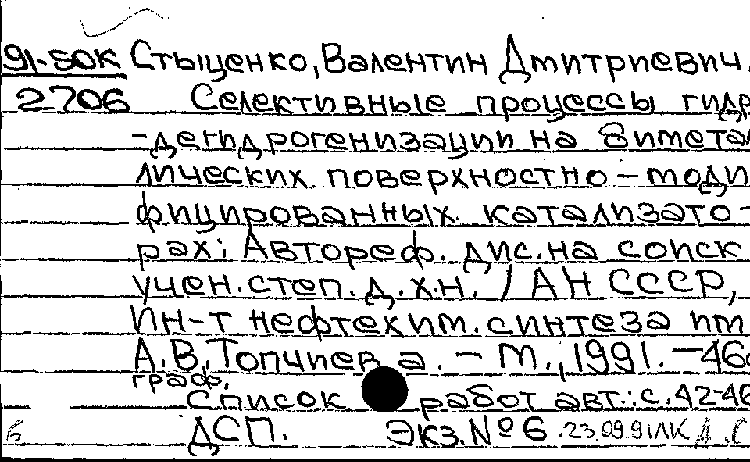 91-50К Стыценко, Валентин Дмитриевич.
2706 Селективные процессы гидр
-дегидрогенизации на бимета
лических поверхностно-моди
фицированных катализато-
рах: Автореф. дис. на соиск
учен. степ. д.х.н. / АН СССР,
Ин-т нефтехим. синтеза им
А.В.Топчиева. - М., 1991. - 46с
граф.
Список работ авт.: с. 42-46
ДСП. Экз. № 6. 23.09.91